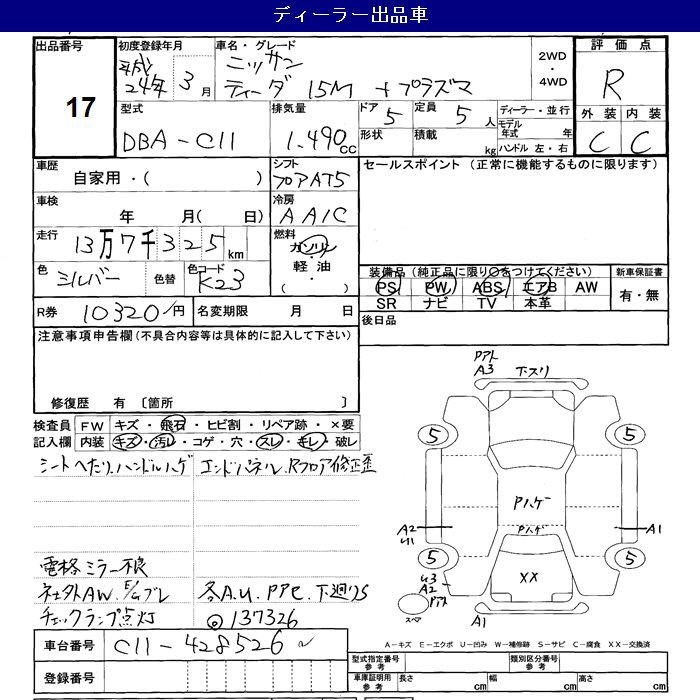 ディーラー出品車
出品番号 初度登録年月 車名・グレード 評価点
17
平成24年 3月
ニッサン
ティーダ 15M +プラズマ
2WD
・
4WD
R
型式 排気量 ドア 定員 ディーラー・並行 外装 内装
DBA-C11 1.490cc 5 5人
形状 積載 kg
モデル年式 年
ハンドル 左・右
C C
車歴 シフト セールスポイント (正常に機能するものに限ります)
自家用・( ) フロアAT5
車検 冷房
年 月(日) AAIC
走行 燃料
13万7千325km ガソリン
・
軽油
・
( )
色 色替 色コード
シルバー K23
装備品 (純正品に限り○をつけてください) 新車保証書
PS PW ABS エアB AW
SR ナビ TV 本革
有・無
R券 10320円 名変期限 月 日
後日品
注意事項申告欄(不具合内容等は具体的に記入して下さい)
修復歴 有 〔箇所 〕
検査員 FW キズ・飛石・ヒビ割・リペア跡・×要
記入欄 内装 キズ・汚レ・コゲ・穴・スレ・キレ・破レ
シートヘたり、ハンドルハゲ
エンドパネル、Rフロア修正歪
電格ミラー不良
社外AW、E/Gブレ
チェックランプ点灯
各A.U
下廻りS
137326
A3
下スリ
5
5
Pハゲ
Pハゲ
A2
U1
A1
5
5
U3
A2
XX
スペア
A1
車台番号 C11-428526
登録番号
A-キズ E-エクボ U-凹み W-補修跡 S-サビ C-腐食 XX-交換済
型式指定番号 参考 類別区分番号 参考
車庫証明用 参考 長さ cm 幅 cm 高さ cm